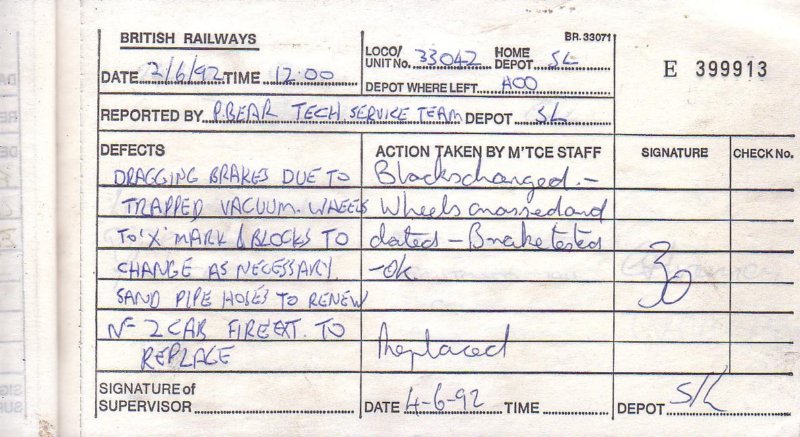 BRITISH RAILWAYS
BR. 33071
DATE 2/6/92 TIME 12.00
LOCO/ UNIT No. 33042 HOME DEPOT SL
DEPOT WHERE LEFT A00
E 399913
REPORTED BY P.BEAR TECH SERVICE TEAM DEPOT SL
DEFECTS
ACTION TAKEN BY M'TCE STAFF
SIGNATURE
CHECK No.
DRAGGING BRAKES DUE TO
TRAPPED VACUUM. WHEELS
TO 'X' MARK & BLOCKS TO
CHANGE AS NECESSARY.
SAND PIPE HOSES TO RENEW
No 2 CAB FIRE EXT. TO
REPLACE
Blocks changed. -
Wheels crossed and
dated - Brake tested
- OK.
Replaced
30
SIGNATURE of
SUPERVISOR
DATE 4-6-92 TIME
DEPOT SL